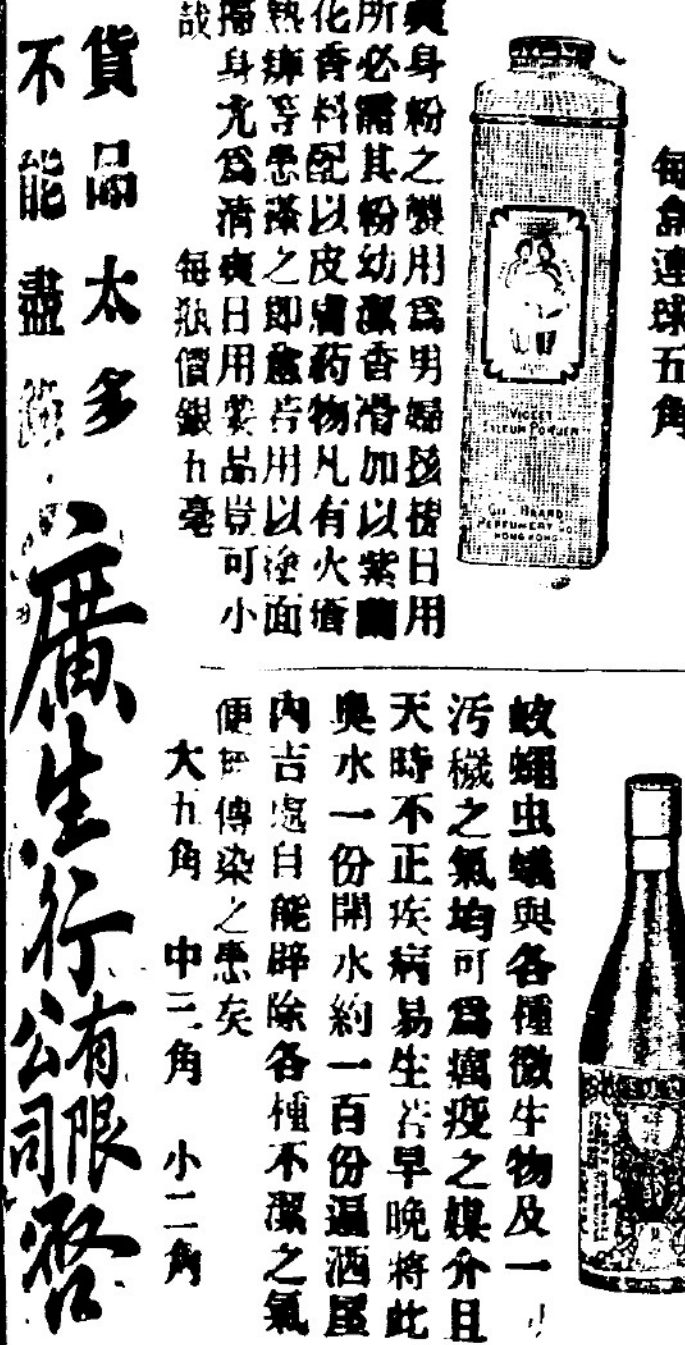 每盒連球五角
VIOLET
TALCUM POWDER
BRAND
PERFUMERY CO.
HONG KONG
爽身粉之製用爲男婦孩提日用
所必需其粉幼潔香滑加以紫蘭
化香料配以皮膚药物凡有火瘡
熱痱等患蓀之即愈若用以塗面
擦身尤爲清爽日用裝品豈可小
哉
每瓶價銀五毫
蚊蠅虫蟻與各種微生物及一
污穢之氣均可爲癘疫之媒介且
天時不正疾病易生若早晚將此
臭水一份開水約一百份遍洒屋
內吉處自能辟除各種不潔之氣
便無傳染之患矣
大五角 中三角 小二角
貨品太多
不能盡錄
廣生行有限公司啓